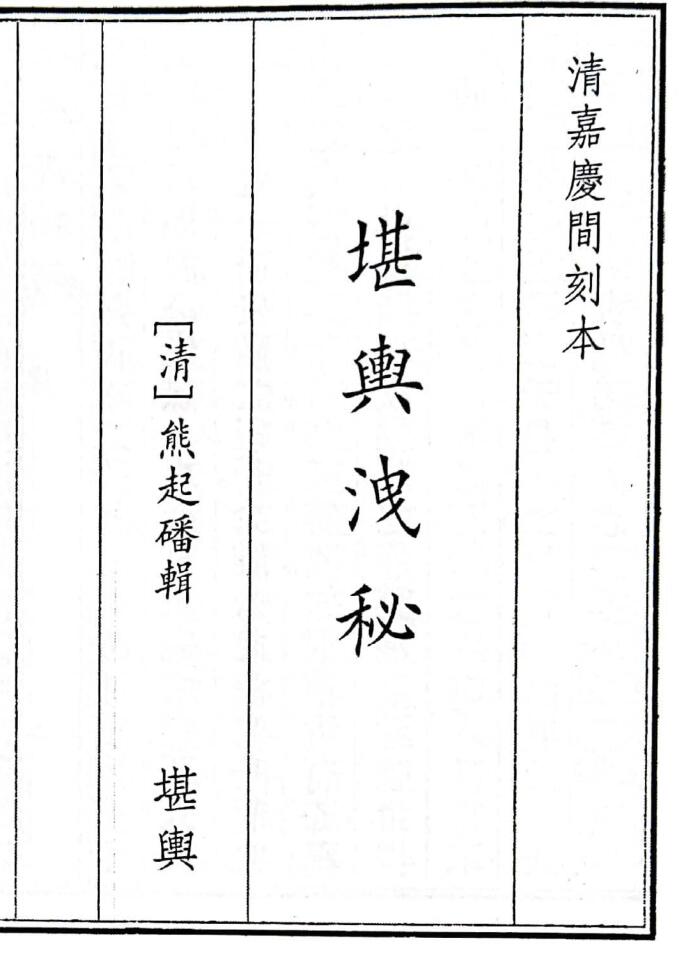 清嘉慶間刻本
堪輿洩秘
［清］熊起磻輯
堪輿